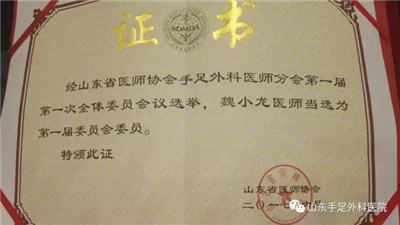 证书
SDMDA
经山东省医师协会手足外科医师分会第一届
第一次全体委员会议选举，魏小龙医师当选为
第一届委员会委员。
特颁此证
山东省医师协会
二〇一七
山东手足外科医院